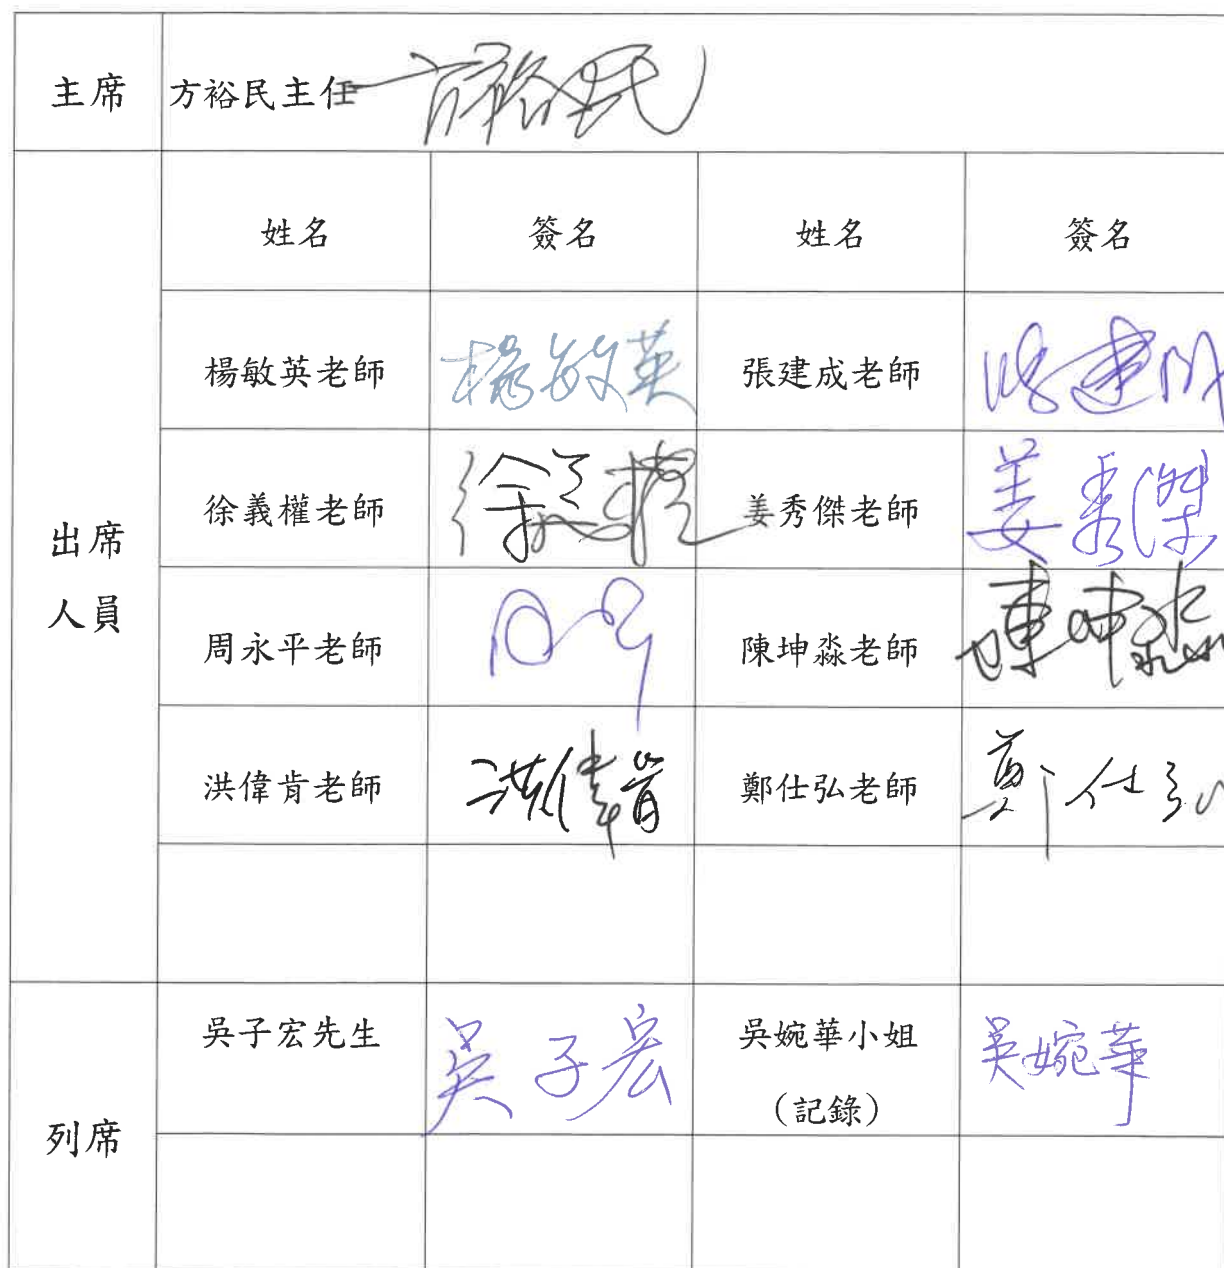 主席 方裕民主任 方裕民
姓名 簽名 姓名 簽名
楊敏英老師 楊敏英 張建成老師 張建成
徐義權老師 徐義權 姜秀傑老師 姜秀傑
出席
人員
周永平老師 陳坤淼老師 陳坤淼
洪偉肯老師 洪偉肯 鄭仕弘老師 鄭仕弘
吳子宏先生 吳子宏 吳婉華小姐 吳婉華
(記錄)
列席